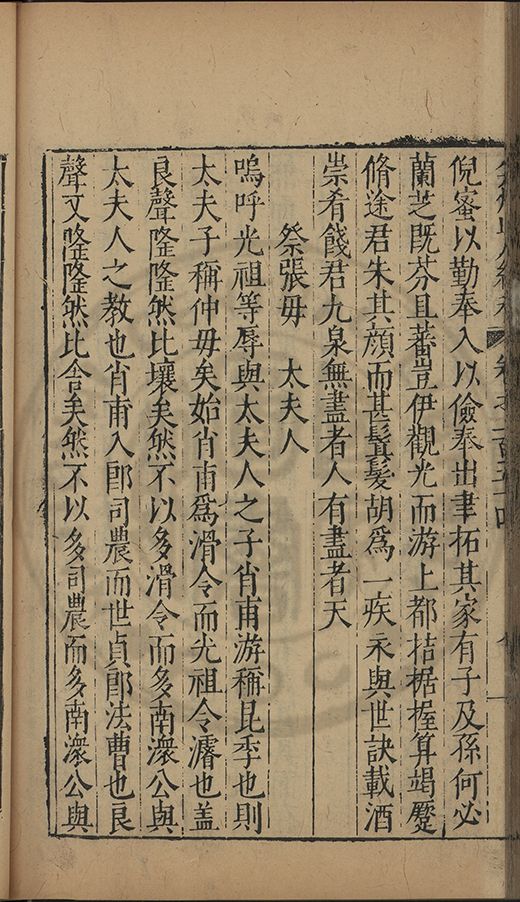 倪蜜以勤奉入以儉奉出聿拓其家有子及孫何必
蘭芝既芬且蕃豈伊觀光而游上都拮椐握算竭蹷
脩途君朱其顔而甚鬒髮胡爲一疾永與世訣載酒
崇肴餞君九泉無盡者人有盡者天
祭張母　太夫人
嗚呼光祖等辱與太夫人之子肖甫游稱昆季也則
太夫子稱仲母矣始肖甫爲滑令而光祖令濬也盖
良聲隆隆然比壤矣然不以多滑令而多南瀠公與
太夫人之教也肖甫入郎司農而世貞郎法曹也良
聲又隆隆然比舍矣然不以多司農而多南瀠公與